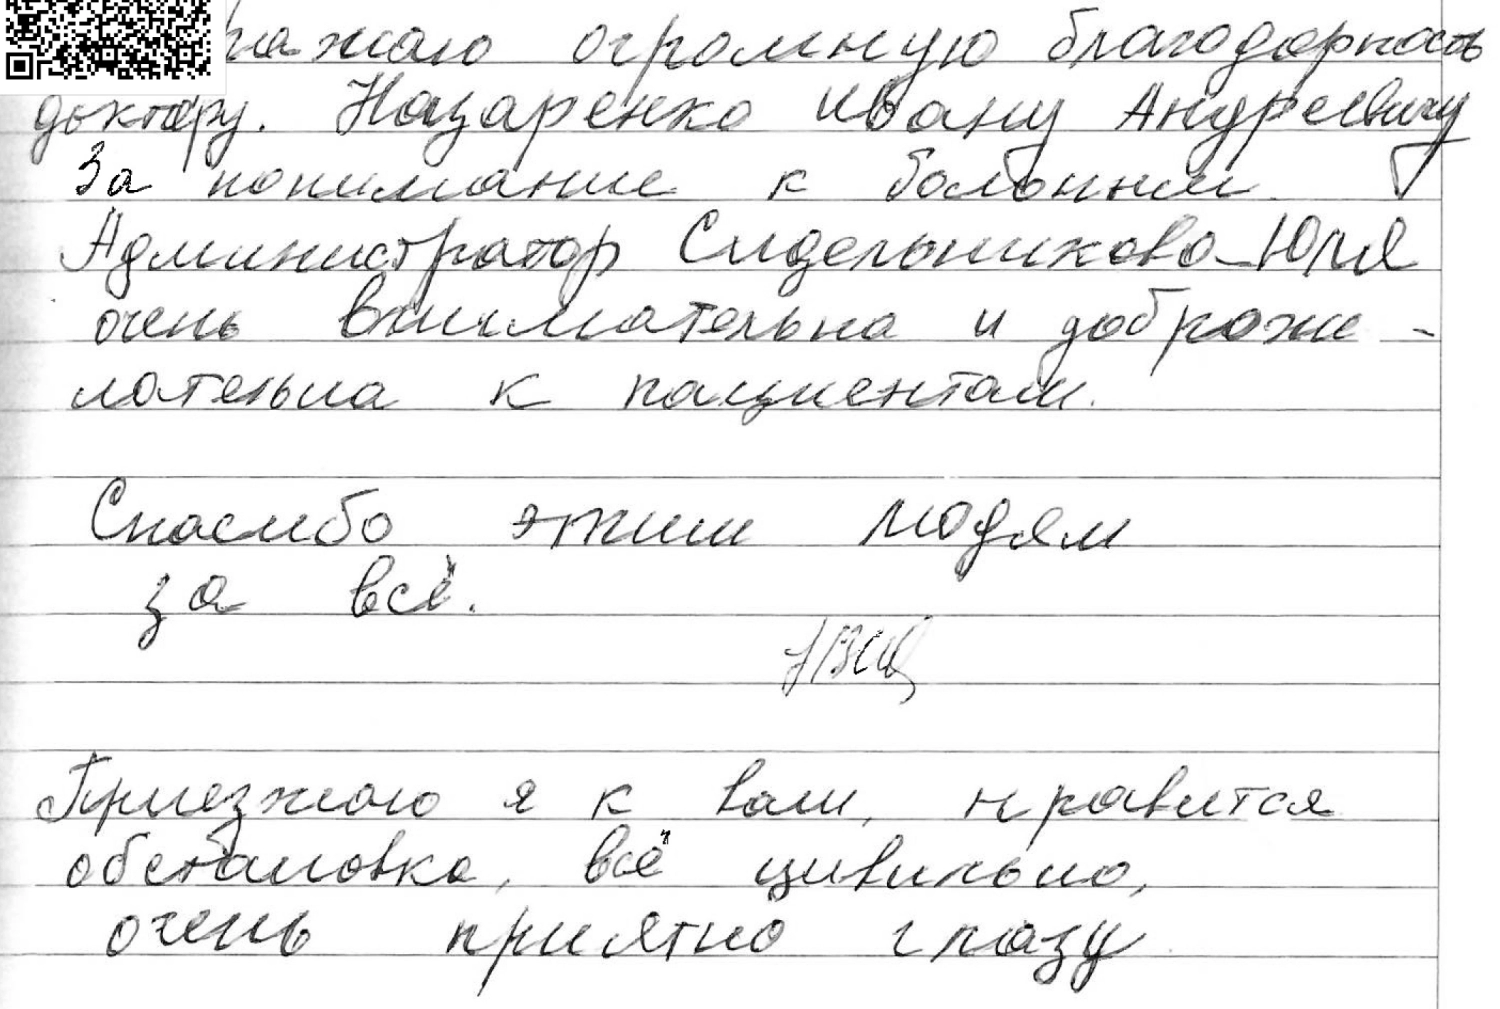 ражаю огромную благодарность
доктору. Назаренко Ивану Андреевичу
За понимание к больным.
Администратор Сидельникова Юля
очень внимательна и доброже-
лательна к пациентам.
Спасибо этим людям
за всё.
Приезжаю я к вам, нравится
обстановка, всё цивильно,
очень приятно глазу